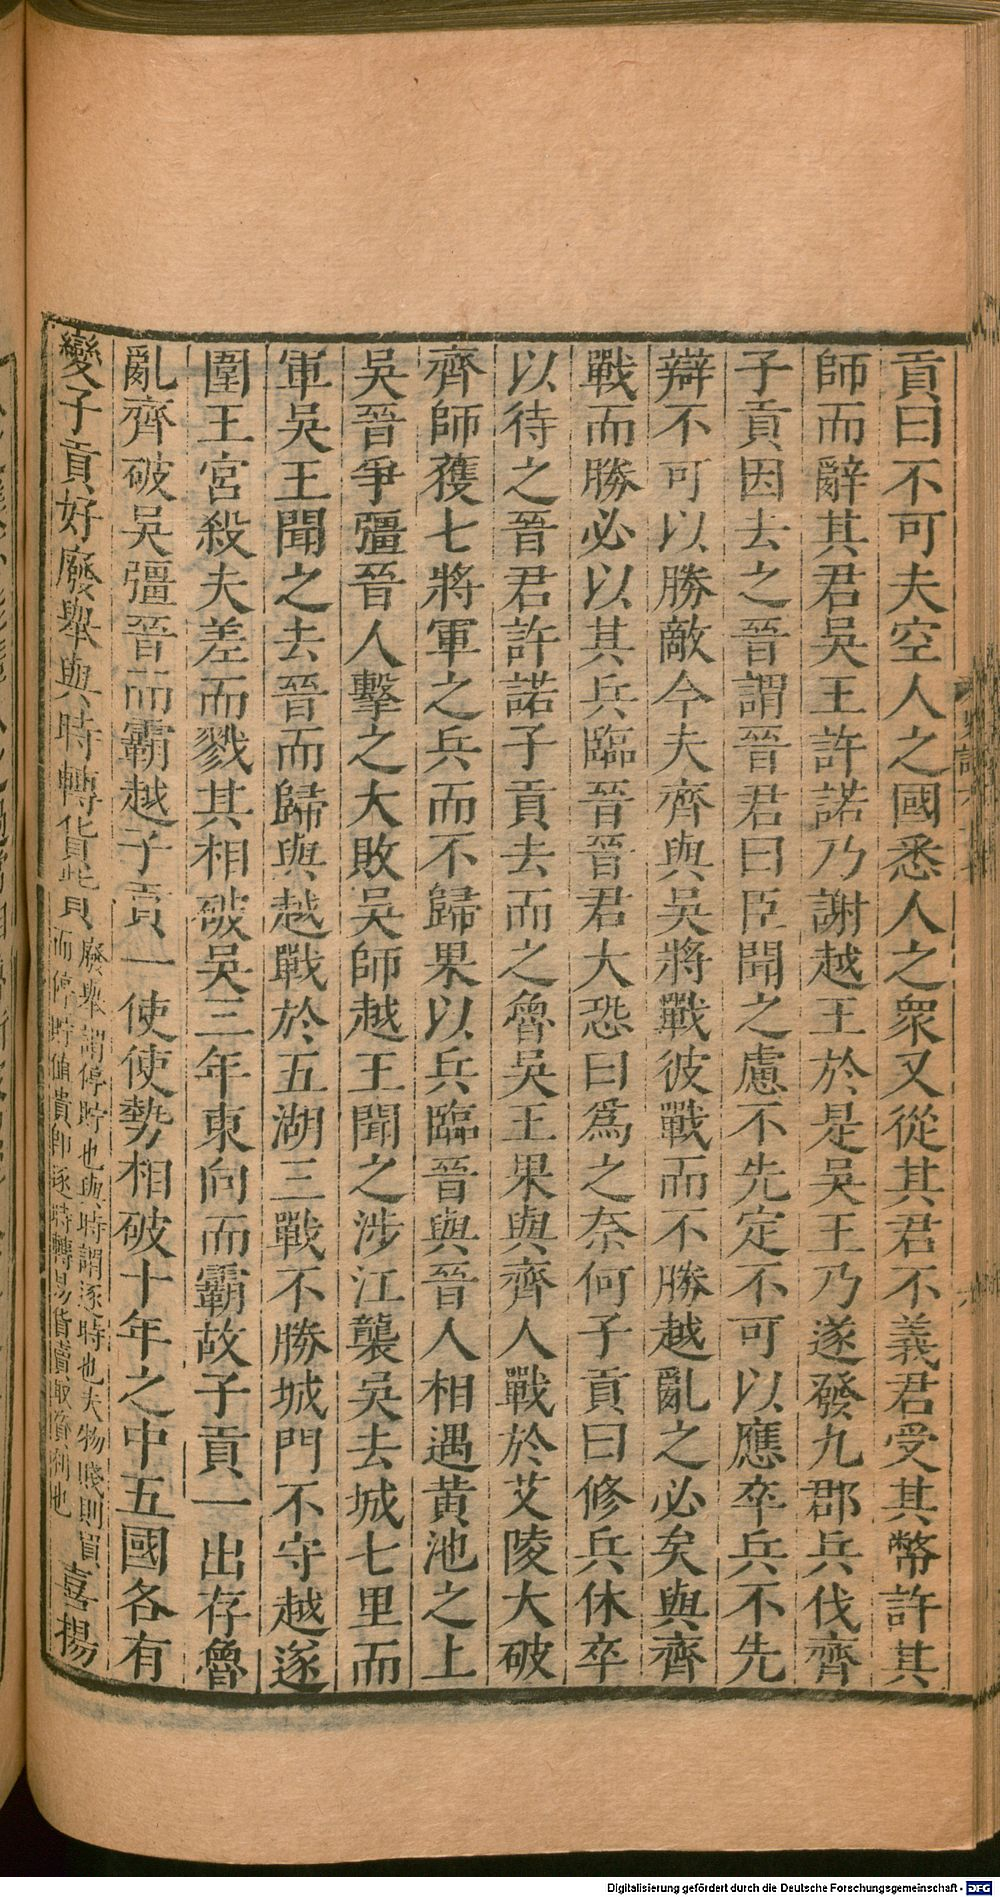 貢曰不可夫空人之國悉人之衆又從其君不義君受其幣許其
師而辭其君吳王許諾乃謝越王於是吳王乃遂發九郡兵伐齊
子貢因去之晉謂晉君曰臣聞之慮不先定不可以應卒兵不先
辯不可以勝敵今夫齊與吳將戰彼戰而不勝越亂之必矣與齊
戰而勝必以其兵臨晉晉君大恐曰爲之奈何子貢曰修兵休卒
以待之晉君許諾子貢去而之魯吳王果與齊人戰於艾陵大破
齊師獲七將軍之兵而不歸果以兵臨晉與晉人相遇黃池之上
吳晉爭彊晉人擊之大敗吳師越王聞之涉江襲吳去城七里而
軍吳王聞之去晉而歸與越戰於五湖三戰不勝城門不守越遂
圍王宮殺夫差而戮其相破吳三年東向而霸故子貢一出存魯
亂齊破吳彊晉而霸越子貢一使使勢相破十年之中五國各有
變子貢好廢舉與時轉貨貲
廢舉謂停貯也與時謂逐時也夫物賤則買
而停貯值貴即逐時轉易貨賣取資利也
喜揚
Digitalisierung gefördert durch die Deutsche Forschungsgemeinschaft - DFG